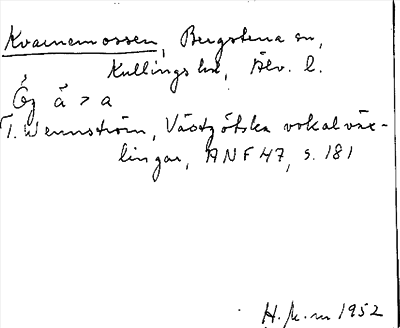 Kvarnemossen, Bergstena sn,
Kullings hd, Älv. l.
Ög ä > a
T. Wennström, Västgötska vokalväx-
lingar, ANF 47, s. 181
H. k. m 1952